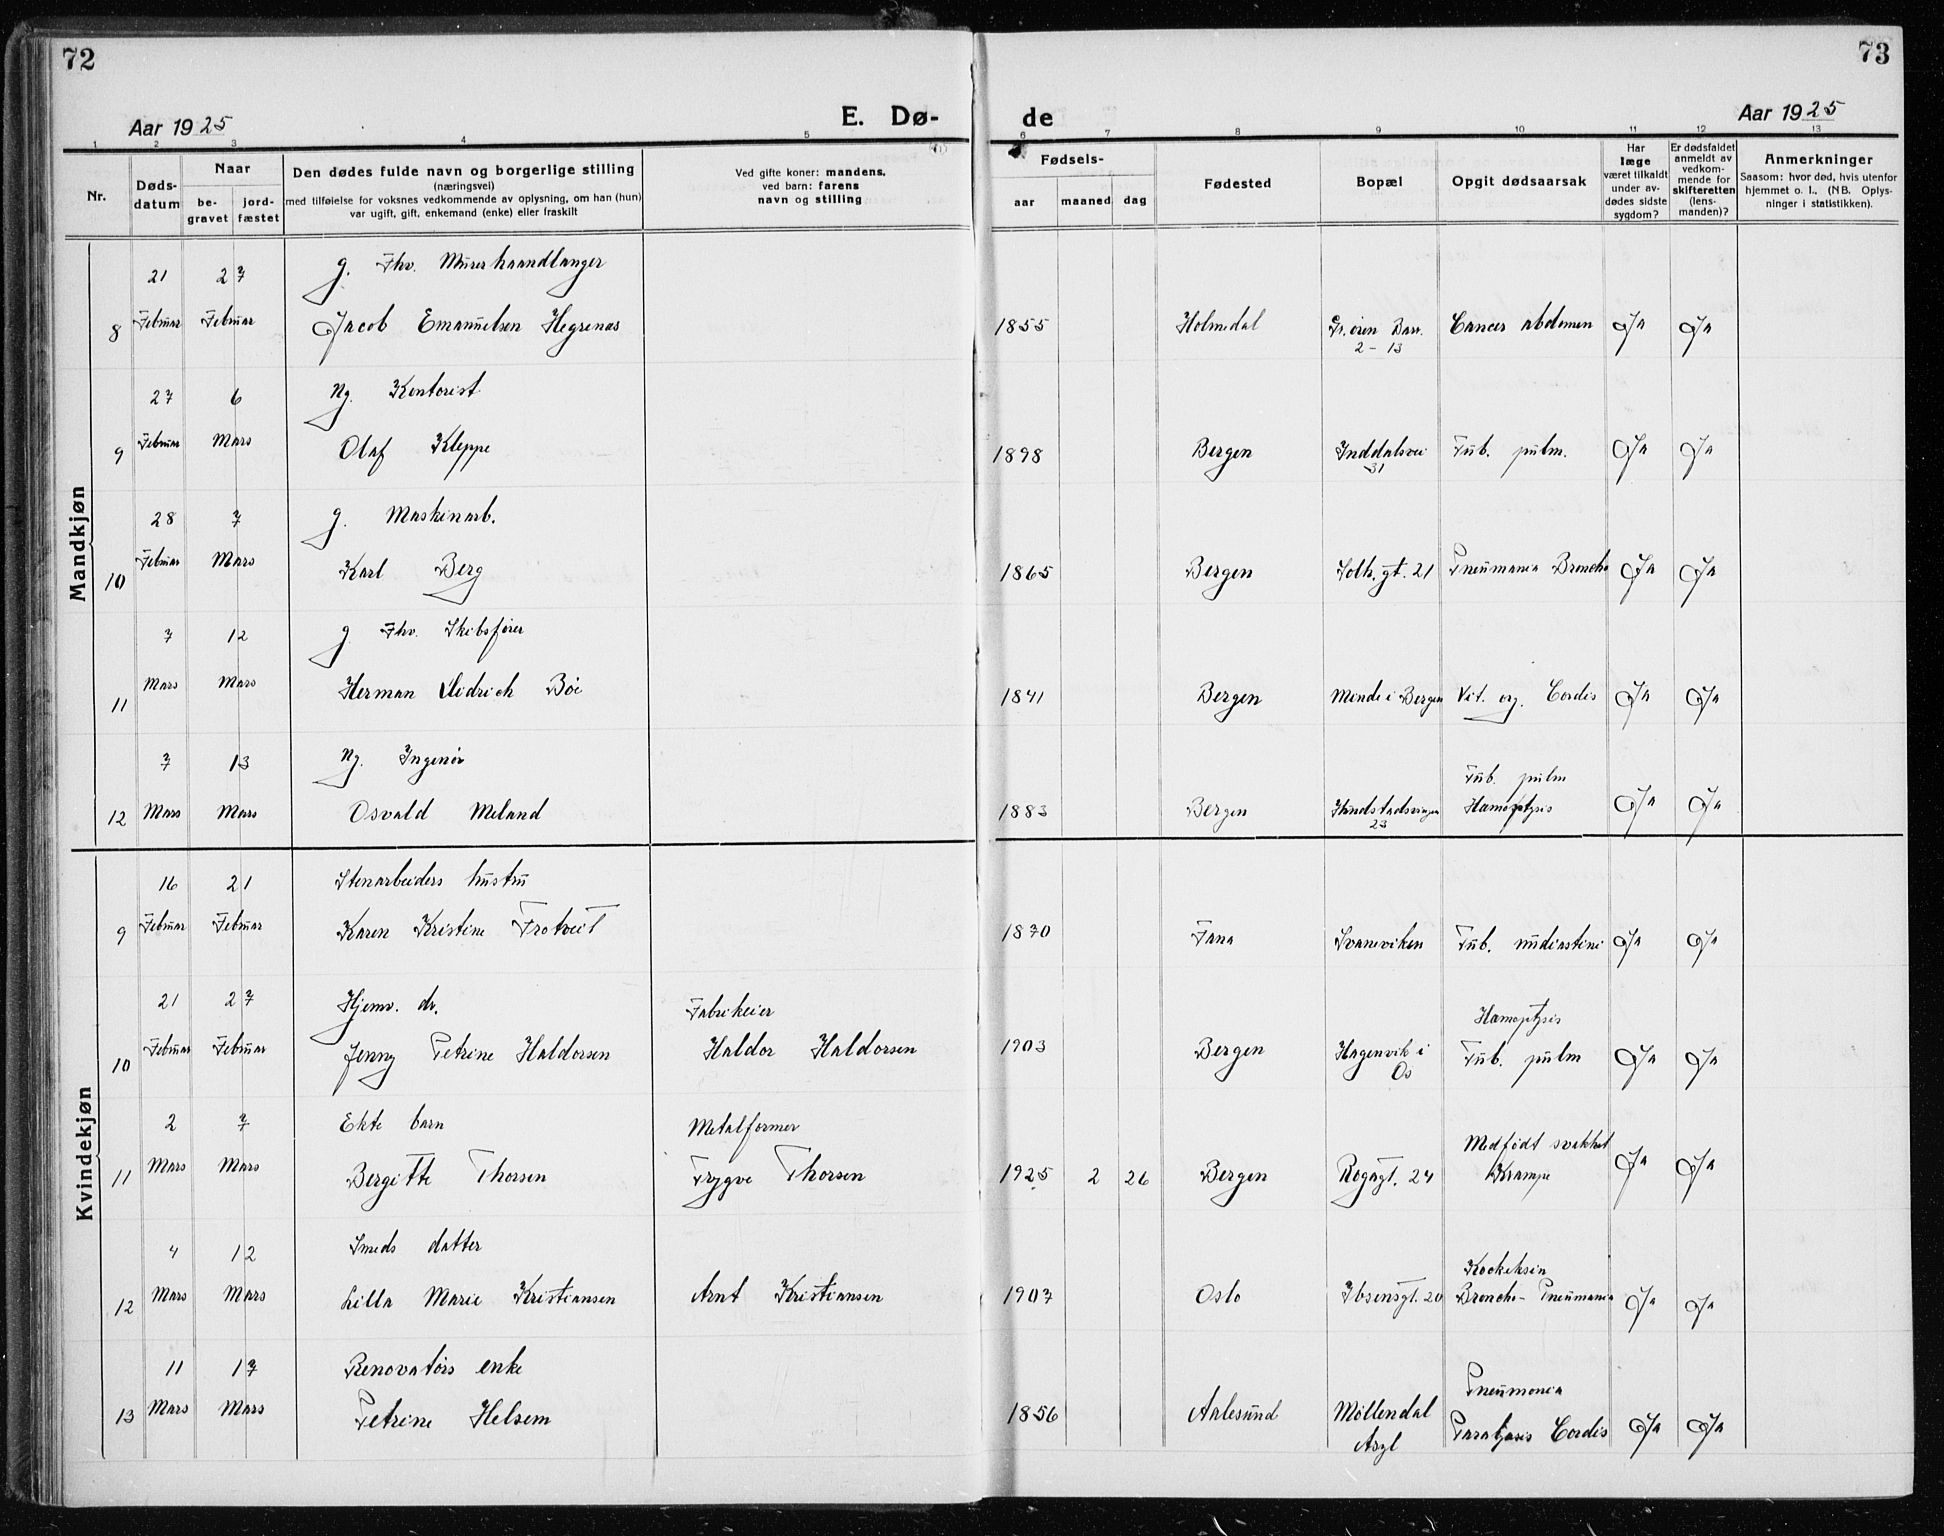 72
73
Aar 1925
E. Dø-
de
Aar 1925
1 2 3 4 5 6 7 8 9 10 11 12 13
Nr.
Døds-
datum
Naar
be-
gravet
jord-
fæstet
Den dødes fulde navn og borgerlige stilling
(næringsvei)
med tilføielse for voksnes vedkommende av oplysning, om han (hun)
var ugift, gift, enkemand (enke) eller fraskilt
Ved gifte koner: mandens,
ved barn: farens
navn og stilling
Fødsels-
aar
maaned
dag
Fødested
Bopæl
Opgit dødsaarsak
Har
læge
været tilkaldt
under av-
dødes sidste
sygdom?
Er dødsfaldet
anmeldt av
vedkom-
mende for
skifteretten
(lens-
manden)?
Anmerkninger
Saasom: hvor død, hvis utenfor
hjemmet o. l., (NB. Oplys-
ninger i statistikken).
Mandkjøn
21 27 g. Fhv. Murerhaandlanger
8 Februar Februar Jacob Emanuelsen Hegrenæs 1855 Holmedal Bar. Cancer abdomen Ja Ja
2 - 13
27 6 Ug. Kontorist
9 Februar Mars Olaf Kleppe 1898 Bergen Inddalsvei Tub. pulm. Ja Ja
31
28 7 g. Maskinarb.
10 Februar Mars Karl Berg 1865 Bergen Solh. gt. 21 Pneumonia Broncho Ja Ja
7 12 g. Fhv. Skibsfører
11 Mars Mars Herman Didrich Bøe 1841 Bergen Minde i Bergen Vit. org. Cordis Ja Ja
7 13 Ug. Ingeniør Tub. pulm
12 Mars Mars Osvald Meland 1883 Bergen Hæmoptysis Ja Ja
23
Kvindekjøn
16 21 Stenarbeiders hustru
9 Februar Februar Karen Kristine Trotveit 1870 Fana Svaneviken Tub. Ja Ja
21 27 Hjemv. dr. Fabrikeier Hæmoptysis
10 Februar Februar Jenny Petrine Haldorsen Haldor Haldorsen 1903 Bergen Hagenvik i Tub. pulm Ja Ja
Os
2 7 Ekte barn Metalformer Medfødt svakhet
11 Mars Mars Bergitte Thorsen Trygve Thorsen 1925 2 26 Bergen Rogagt. 24 Krampe Ja Ja
4 12 Smeds datter
12 Mars Mars Lilla Marie Kristiansen Arnt Kristiansen 1907 Oslo Ibsensgt. 20 Broncho - Pneumonia Ja Ja
11 17 Renovatørs enke Pneumonia
13 Mars Mars Petrine Helsem 1856 Aalesund Møllendal Paralysis Cordis Ja Ja
Asyl